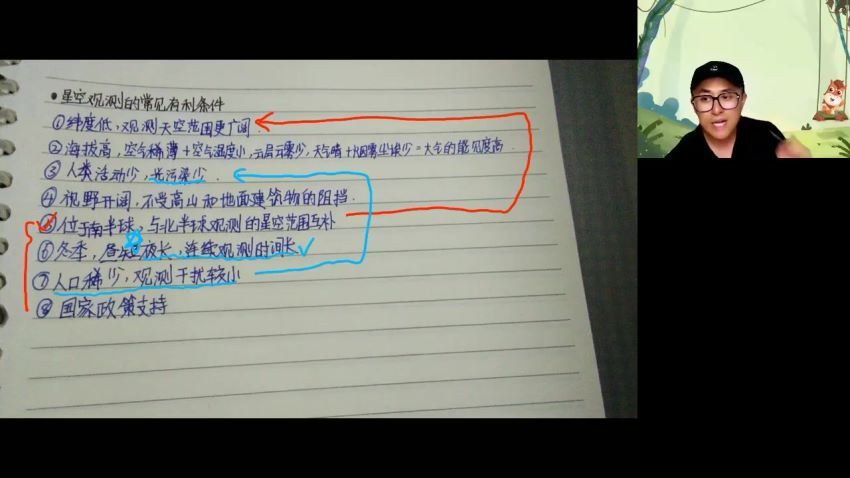 •星空观测的常见有利条件
①纬度低,观测天空范围更广阔.
②海拔高,空气稀薄+空气湿度小,云层云雾少,天气晴+烟雾尘埃少=大气的能见度高.
③人类活动少,光污染少.
④视野开阔,不受高山和地面建筑物的阻挡.
⑤位于南半球,与北半球观测的星空范围互补
⑥冬季,昼短夜长,连续观测时间长
⑦人口稀少,观测干扰较小
⑧国家政策支持